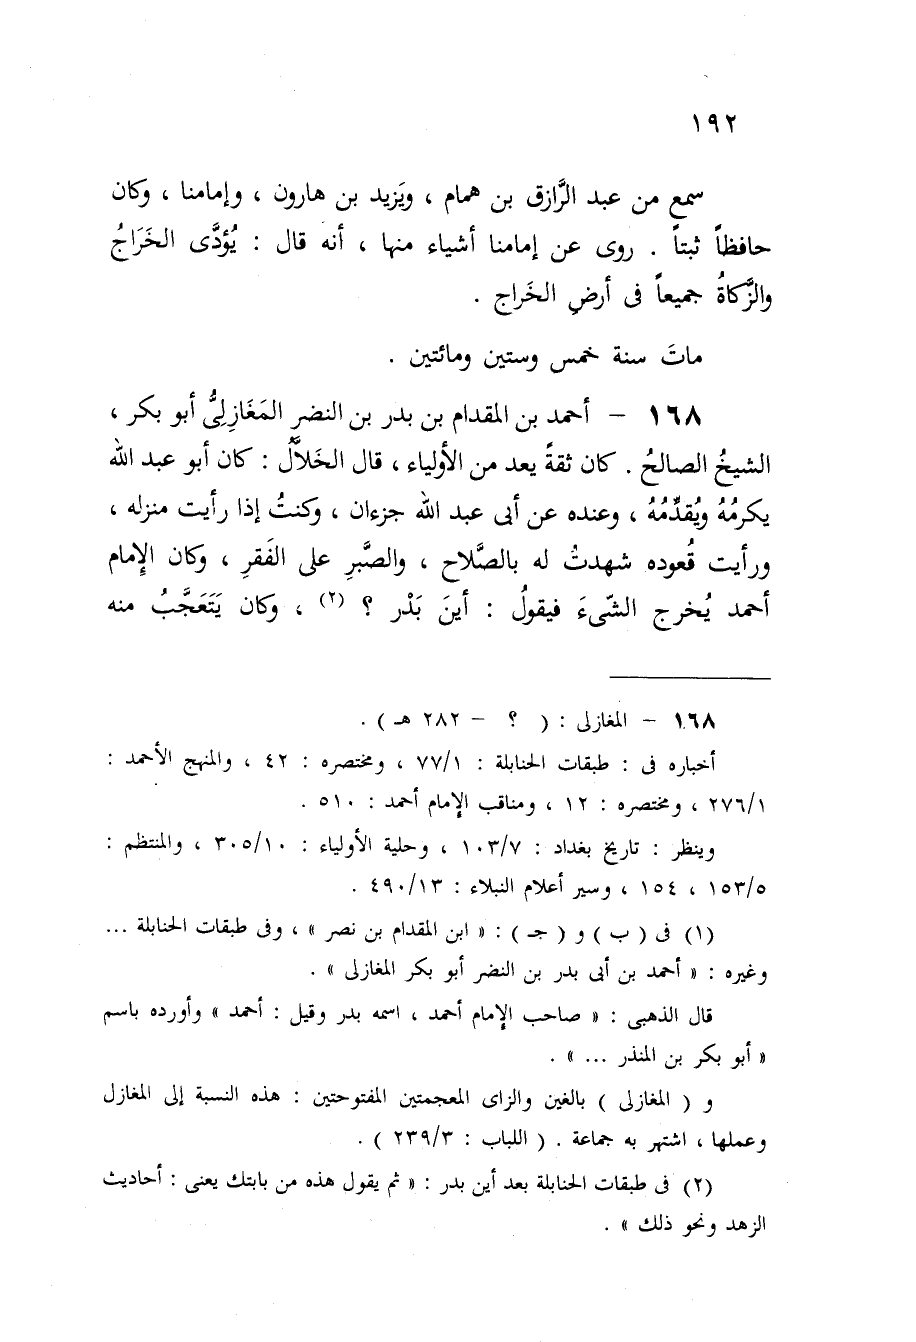 ١٩٢
سمع من عبد الرَّازق بن همام ، ويَزيد بن هارون ، وإمامنا ، وكان
حافظاً ثبتاً . روى عن إمامنا أشياء منها ، أنه قال : يُؤدَّى الخَرَاجُ
والزَّكاةُ جميعاً فى أرضِ الخَراج .
ماتَ سنة خمس وستين ومائتين .
١٦٨ - أحمد بن المقدام بن بدر بن النضر المَغَازِلِىُّ أبو بكر ،
الشيخُ الصالحُ . كان ثقةً يعد من الأولياء ، قال الخَلَّالُ : كان أبو عبد الله
يكرمُهُ ويُقدِّمُهُ ، وعنده عن أبى عبد الله جزءان ، وكنتُ إذا رأيت منزله ،
ورأيت قُعوده شهدتُ له بالصَّلاح ، والصَّبرِ على الفَقرِ ، وكان الإِمام
أحمد يُخرج الشّىءَ فيقولُ : أينَ بَدْر ؟ (٢) ، وكان يَتَعَجَّبُ منه
١٦٨ - المغازلى : ( ؟ - ٢٨٢ هـ ) .
أخباره فى : طبقات الحنابلة : ٧٧/١ ، ومختصره : ٤٢ ، والمنهج الأحمد :
٢٧٦/١ ، ومختصره : ١٢ ، ومناقب الإِمام أحمد : ٥١٠ .
وينظر : تاريخ بغداد : ١٠٣/٧ ، وحلية الأولياء : ٣٠٥/١٠ ، والمنتظم :
١٥٣/٥ ، ١٥٤ ، وسير أعلام النبلاء : ٤٩٠/١٣ .
(١) فى ( ب ) و ( جـ ) : « ابن المقدام بن نصر » ، وفى طبقات الحنابلة ...
وغيره : « أحمد بن أبى بدر بن النضر أبو بكر المغازلى » .
قال الذهبى : « صاحب الإِمام أحمد ، اسمه بدر وقيل : أحمد » وأورده باسم
« أبو بكر بن المنذر ... » .
و ( المغازلى ) بالغين والزاى المعجمتين المفتوحتين : هذه النسبة إلى المغازل
وعملها ، اشتهر به جماعة . ( اللباب : ٢٣٩/٣ ) .
(٢) فى طبقات الحنابلة بعد أين بدر : « ثم يقول هذه من بابتك يعنى : أحاديث
الزهد ونحو ذلك » .